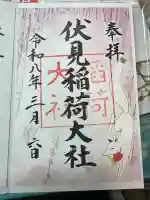 奉拝
伏見稲荷大社
令和八年三月六日
稲荷
大社